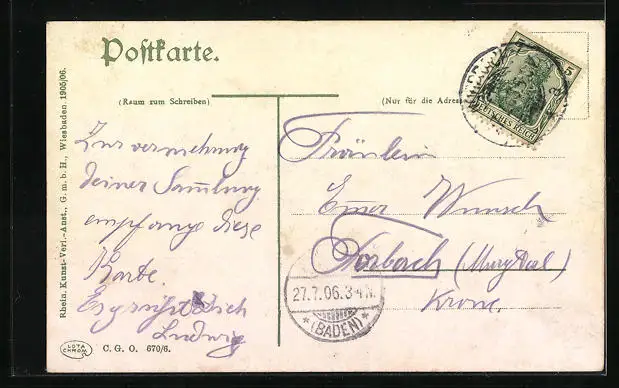 Postkarte.
(Raum zum Schreiben)
(Nur für die Adresse
5 5
DEUTSCHES REICH
Rhein. Kunst-Verl.-Anst., G. m. b. H., Wiesbaden 1905/06.
Zur vermehrung
deiner Sammlung
empfange diese
Karte.
Es grüßt Dich
Ludwig
Fräulein
Wunsch
Forbach (Murgtal)
Krone.
27.7.06. 3-4N.
* (BADEN) *
LOTA
CHROM
C. G. O. 670/6.